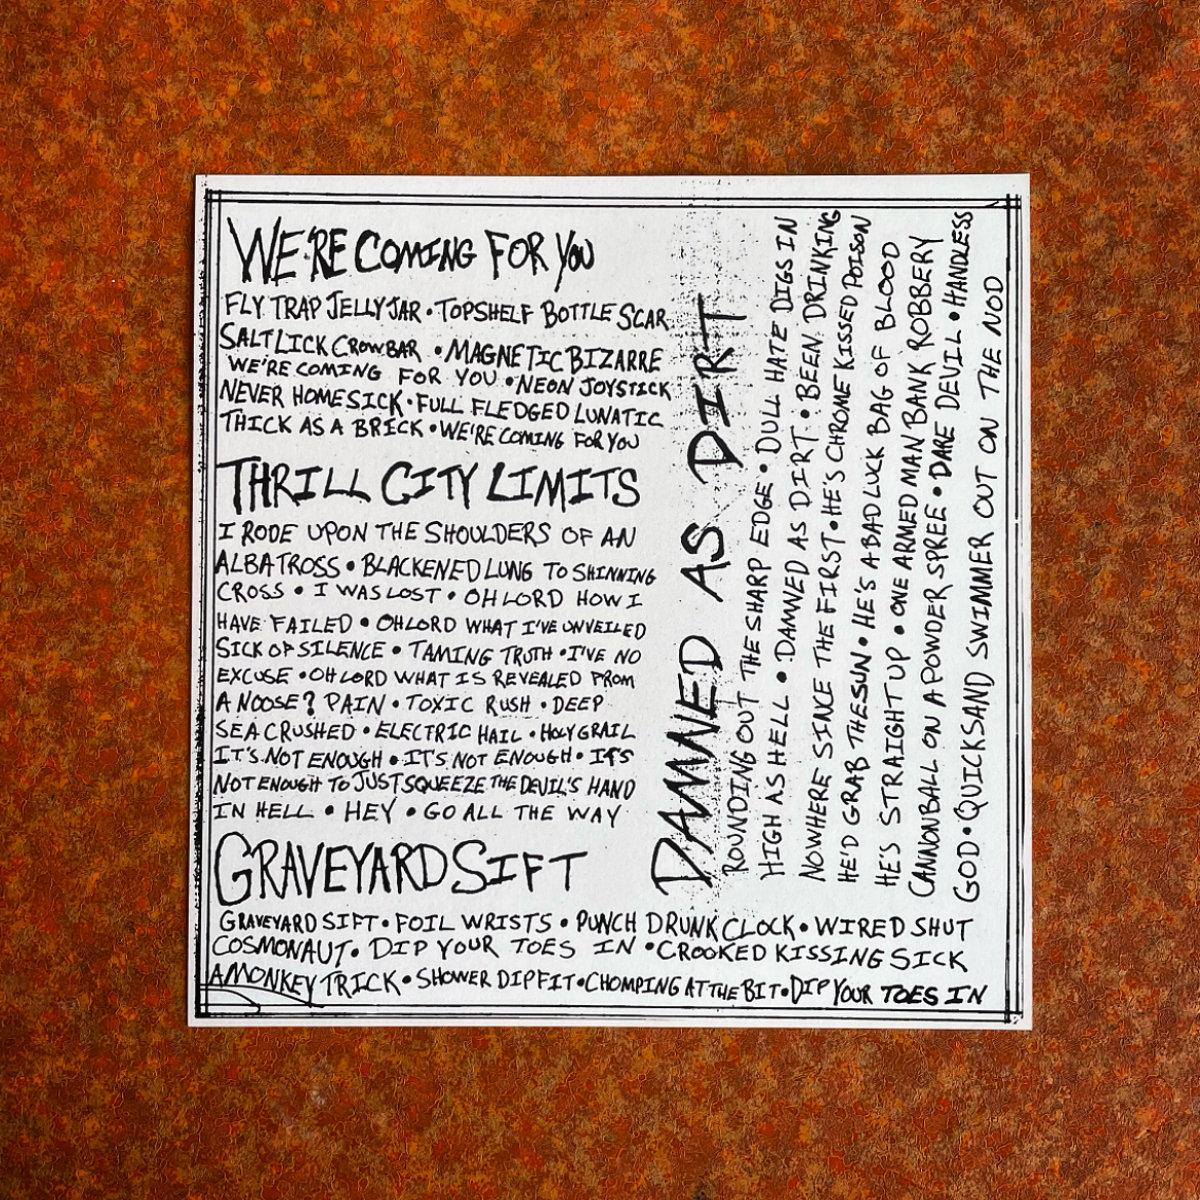 WE'RE COMING FOR YOU
FLY TRAP JELLY JAR • TOPSHELF BOTTLE SCAR
SALT LICK CROWBAR • MAGNETIC BIZARRE
WE'RE COMING FOR YOU • NEON JOYSTICK
NEVER HOMESICK • FULL FLEDGED LUNATIC
THICK AS A BRICK • WE'RE COMING FOR YOU
THRILL CITY LIMITS
I RODE UPON THE SHOULDERS OF AN
ALBATROSS • BLACKENED LUNG TO SHINNING
CROSS • I WAS LOST • OH LORD HOW I
HAVE FAILED • OH LORD WHAT I'VE UNVEILED
SICK OF SILENCE • TAMING TRUTH • I'VE NO
EXCUSE • OH LORD WHAT IS REVEALED FROM
A NOOSE? PAIN • TOXIC RUSH • DEEP
SEA CRUSHED • ELECTRIC HAIL • HOLY GRAIL
IT'S NOT ENOUGH • IT'S NOT ENOUGH • IT'S
NOT ENOUGH TO JUST SQUEEZE THE DEVIL'S HAND
IN HELL • HEY • GO ALL THE WAY
GRAVEYARD SIFT
GRAVEYARD SIFT • FOIL WRISTS • PUNCH DRUNK CLOCK • WIRED SHUT
COSMONAUT • DIP YOUR TOES IN • CROOKED KISSING SICK
A MONKEY TRICK • SHOWER DIPFIT • CHOMPING AT THE BIT • DIP YOUR TOES IN
DAMNED AS DIRT
ROUNDING OUT THE SHARP EDGE • DULL HATE DIGS IN
HIGH AS HELL • DAMNED AS DIRT • BEEN DRINKING
NOWHERE SINCE THE FIRST • HE'S CHROME KISSED POISON
HE'D GRAB THE SUN • HE'S A BAD LUCK BAG OF BLOOD
HE'S STRAIGHT UP • ONE ARMED MAN BANK ROBBERY
CANNONBALL ON A POWDER SPREE • DARE DEVIL • HANDLESS
GOD • QUICKSAND SWIMMER OUT ON THE NOD